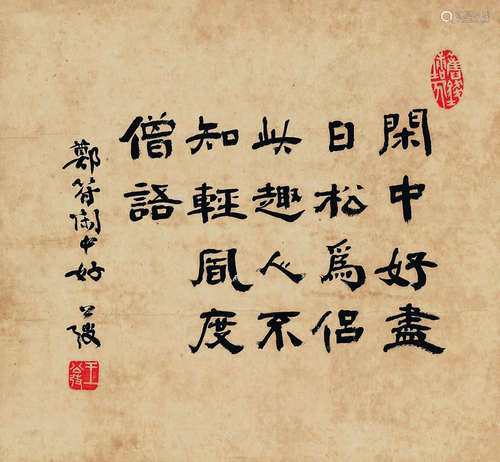 閑中好盡
日松為侶
此趣人不
知輕風度
僧語
鄭符閑中好 公發